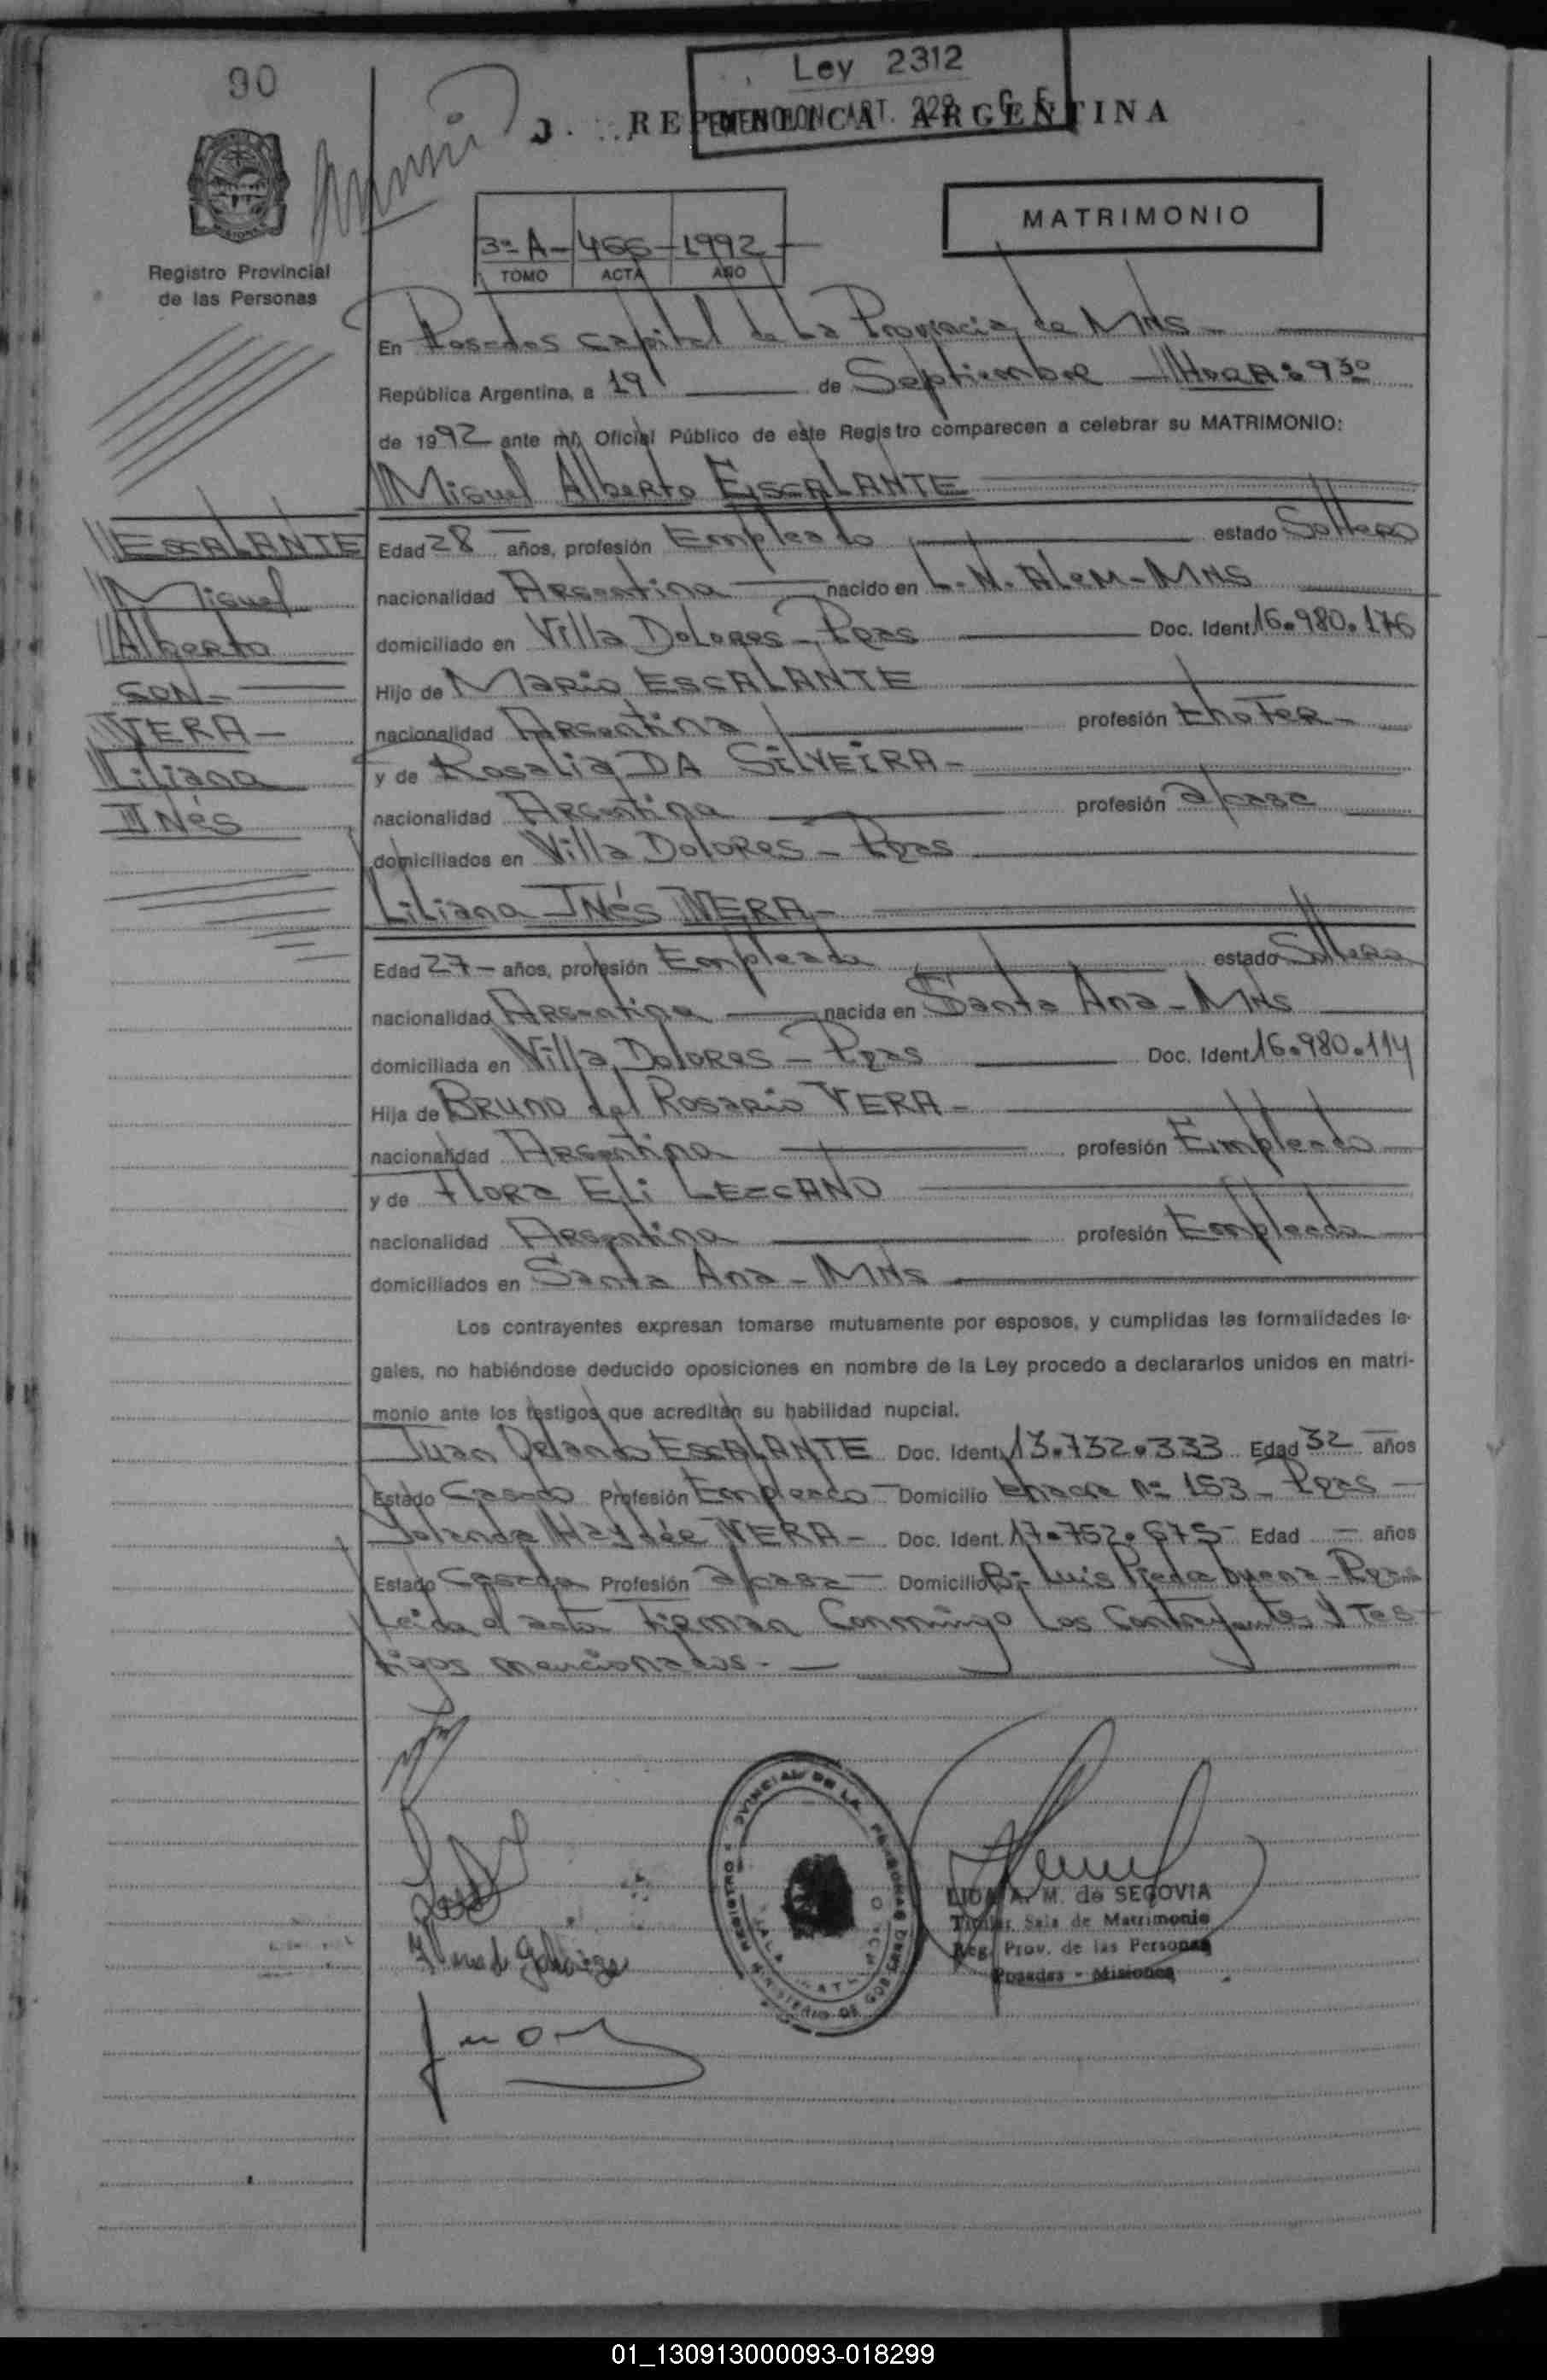 90
Ley 2312
REPUBLICA ARGENTINA
EXENCION ART. 229 C. F.
MATRIMONIO
3º A - 466 - 1992 -
TOMO ACTA AÑO
Registro Provincial
de las Personas
En Posadas Capital de La Provincia de Mns -
República Argentina, a 19 de Septiembre - Hora: 9 30
de 1992 ante mí, Oficial Público de este Registro comparecen a celebrar su MATRIMONIO:
Miguel Alberto ESCALANTE
ESCALANTE
Miguel
Alberto
CON -
VERA -
Liliana
INés
Edad 28 años, profesión Empleado estado Soltero
nacionalidad Argentina nacido en L. N. Alem - Mns
domiciliado en Villa Dolores - Pdas Doc. Ident. 16.980.176
Hijo de Mario ESCALANTE
nacionalidad Argentina profesión Chofer -
y de Rosalia DA SILVEIRA -
nacionalidad Argentina profesión a/casa
domiciliados en Villa Dolores - Pdas
Liliana INés VERA -
Edad 27 - años, profesión Empleada estado Soltera
nacionalidad Argentina nacida en Santa Ana - Mns
domiciliada en Villa Dolores - Pdas Doc. Ident. 16.980.114
Hija de Bruno del Rosario VERA -
nacionalidad Argentina profesión Empleado
y de Flora Eli LEZCANO
nacionalidad Argentina profesión Empleada
domiciliados en Santa Ana - Mns
Los contrayentes expresan tomarse mutuamente por esposos, y cumplidas las formalidades le-
gales, no habiéndose deducido oposiciones en nombre de la Ley procedo a declararlos unidos en matri-
monio ante los testigos que acreditan su habilidad nupcial.
Juan Orlando ESCALANTE Doc. Ident. 13.732.333 Edad 32 años
Estado Casado Profesión Empleado - Domicilio Chacra Nº 153 - Pdas -
Yolanda Haydée VERA - Doc. Ident. 17.752.675 - Edad - años
Estado Casada Profesión a/casa - Domicilio Bº Luis Piedra buena - Pdas
Leida el acta firman Conmigo Los Contrayentes y Tes
tigos mencionados. -
LIDIA A. M. de SEGOVIA
Titular Sala de Matrimonio
Reg. Prov. de las Personas
Posadas - Misiones
01_130913000093-018299